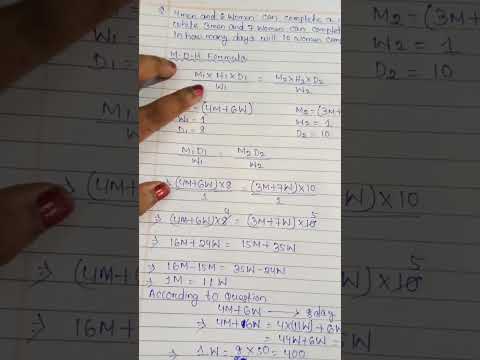 4men and 6 Women can complete a
while 3men and 7 Women can complet
In how many days will 10 women com
M-D-H Formula
M₁×H₁×D₁/W₁ = M₂×H₂×D₂/W₂
= (4M+6W)
W₁ = 1
D₁ = 8
M₂ = (3M+
W₂ = 1
D₂ = 10
M₁D₁/W₁ = M₂D₂/W₂
⇒ (4M+6W)×8/1 = (3M+7W)×10/1
⇒ (4M+6W)×8 4 = (3M+7W)×10 5
⇒ 16M+24W = 15M+35W
⇒ 16M-15M = 35W-24W
⇒ 1M = 11W
According to Question
4M+6W → 8day
⇒ 4M+6W = 4×(11W)+6W
= 44W+6W
1W = 8×50 = 400
M₂ = (3M+
W₂ = 1
D₂ = 10
(4M+6
⇒ 16M+
W)×10
)×10 5